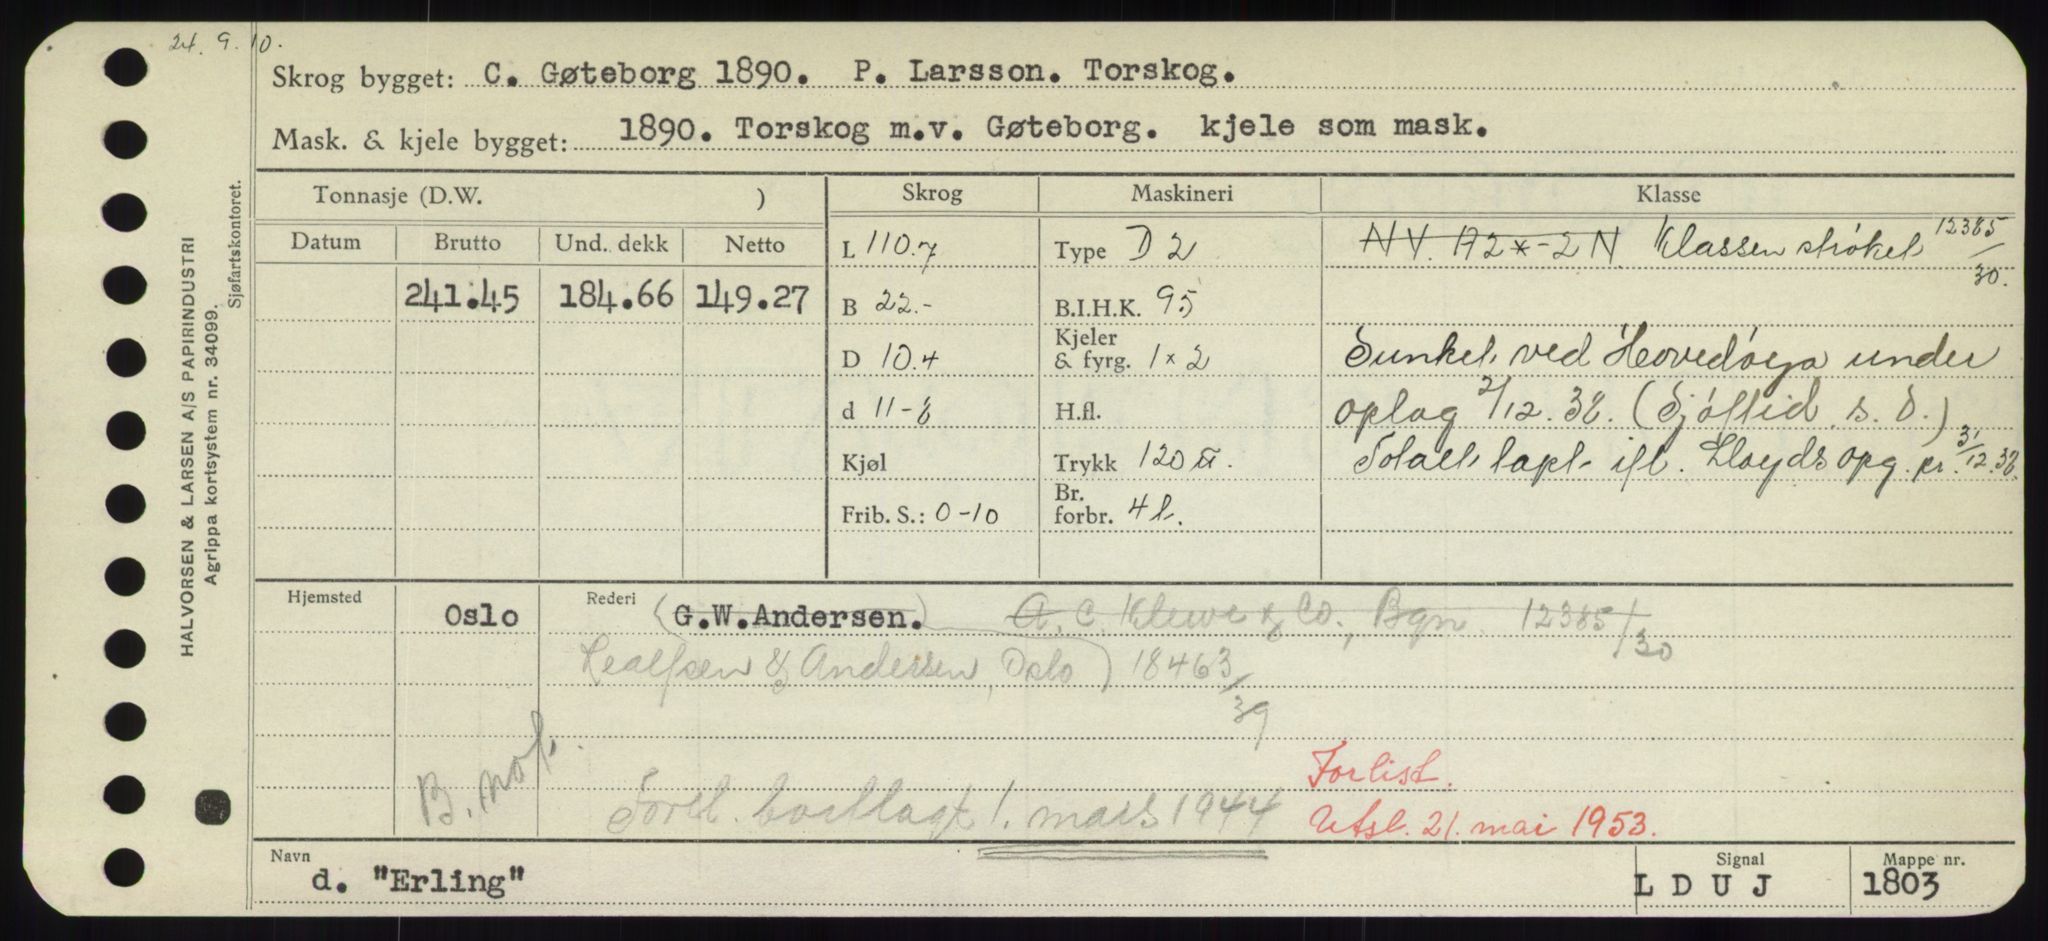 24. 9. 10.
Skrog bygget: C. Gøteborg 1890. P. Larsson. Torskog.
Mask. & kjele bygget: 1890. Torskog m.v. Gøteborg. kjele som mask.
HALVORSEN & LARSEN A/S PAPIRINDUSTRI
Agrippa kortsystem nr. 34099.
Sjøfartskontoret.
Tonnasje (D.W. )
Skrog
Maskineri
Klasse
Datum Brutto Und. dekk Netto
241.45 184.66 149.27
L 110.7
B 22.-
D 10.4
d 11-8
Kjøl
Frib. S.: 0-10
Type D 2
B.I.H.K. 95
Kjeler
& fyrg. 1 x 2
H.fl.
Trykk 120
Br.
forbr. 4 t.
NV. A2*-2N. Klassen strøket 12385/30.
Sunket ved Hovedøya under
oplag 2/12.38. (Sjøftid. s. d.)
Totalt tapt ifl. Lloyds opg. pr. 31/12.38.
Hjemsted Oslo Rederi (G.W.Andersen.) A. C. Kluwe & Co., Bgn. 12385/30
& Andersen, Oslo) 18463/39
B. not.
bortlagt 1. mars 1944
Forlist.
Utsl. 21. mai 1953.
Navn
d. "Erling"
Signal
LDUJ
Mappe nr.
1803